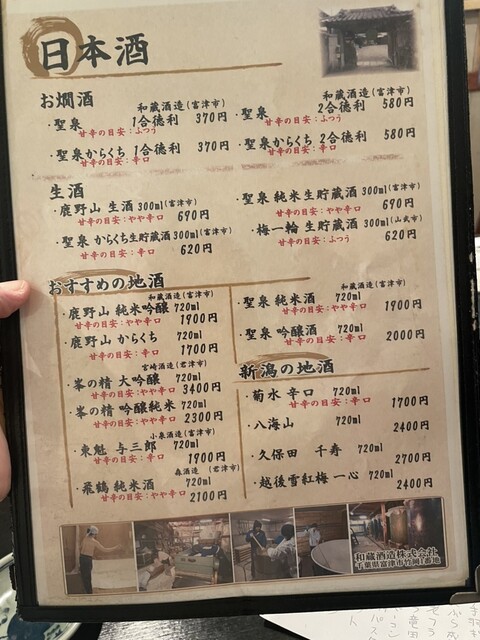 日本酒
お燗酒
和蔵酒造(富津市)
・聖泉 1合徳利 370円
甘辛の目安:ふつう
・聖泉からくち 1合徳利 370円
甘辛の目安:辛口
和蔵酒造(富津市)
・聖泉 2合徳利 580円
甘辛の目安:ふつう
・聖泉からくち 2合徳利 580円
甘辛の目安:辛口
生酒
・鹿野山 生酒 300ml(富津市)
甘辛の目安:やや辛口 690円
・聖泉 からくち生貯蔵酒 300ml(富津市)
甘辛の目安:辛口 620円
・聖泉 純米生貯蔵酒 300ml(富津市)
甘辛の目安:やや辛口 690円
・梅一輪 生貯蔵酒 300ml(山武市)
甘辛の目安:ふつう 620円
おすすめの地酒
和蔵酒造(富津市)
・鹿野山 純米吟醸 720ml
甘辛の目安:やや辛口 1900円
・鹿野山 からくち 720ml
甘辛の目安:辛口 1700円
宮崎酒造(君津市)
・峯の精 大吟醸 720ml
甘辛の目安:やや辛口 3400円
・峯の精 吟醸純米 720ml
甘辛の目安:やや辛口 2300円
小泉酒造(富津市)
・東魁 与三郎 720ml
甘辛の目安:辛口 1900円
森酒造 (君津市)
・飛鶴 純米酒 720ml
甘辛の目安:やや辛口 2100円
和蔵酒造(富津市)
・聖泉 純米酒 720ml
甘辛の目安:やや辛口 1900円
・聖泉 吟醸酒 720ml
甘辛の目安:辛口 2000円
新潟の地酒
・菊水 辛口 720ml
甘辛の目安:辛口 1700円
・八海山 720ml
2400円
・久保田 千寿 720ml
2700円
・越後雪紅梅 一心 720ml
2400円
和蔵酒造株式会社
千葉県富津市竹岡1番地